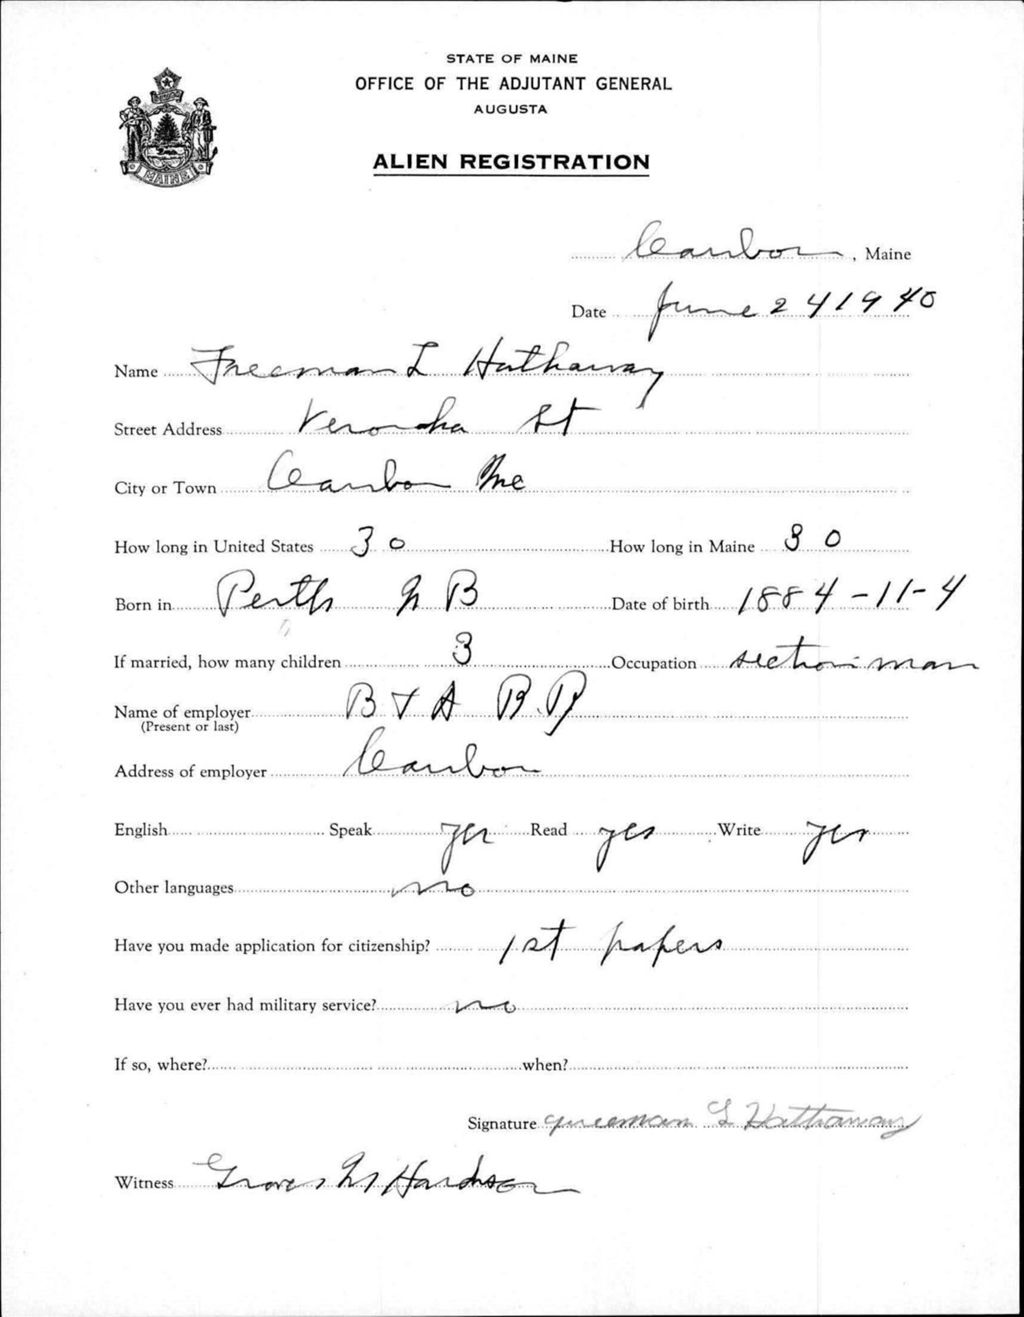 STATE OF MAINE
OFFICE OF THE ADJUTANT GENERAL
AUGUSTA
MAINE
ALIEN REGISTRATION
Caribou, Maine
Date June 24 1940
Name Freeman L Hathaway
Street Address St
City or Town Caribou Me
How long in United States 30 How long in Maine 30
Born in Perth N B Date of birth 1884-11-4
If married, how many children 3 Occupation section man
Name of employer B & A R.R
(Present or last)
Address of employer Caribou
English Speak yes Read yes Write yes
Other languages no
Have you made application for citizenship? 1st papers
Have you ever had military service? no
If so, where? when?
Signature Freeman L Hathaway
Witness Hardison